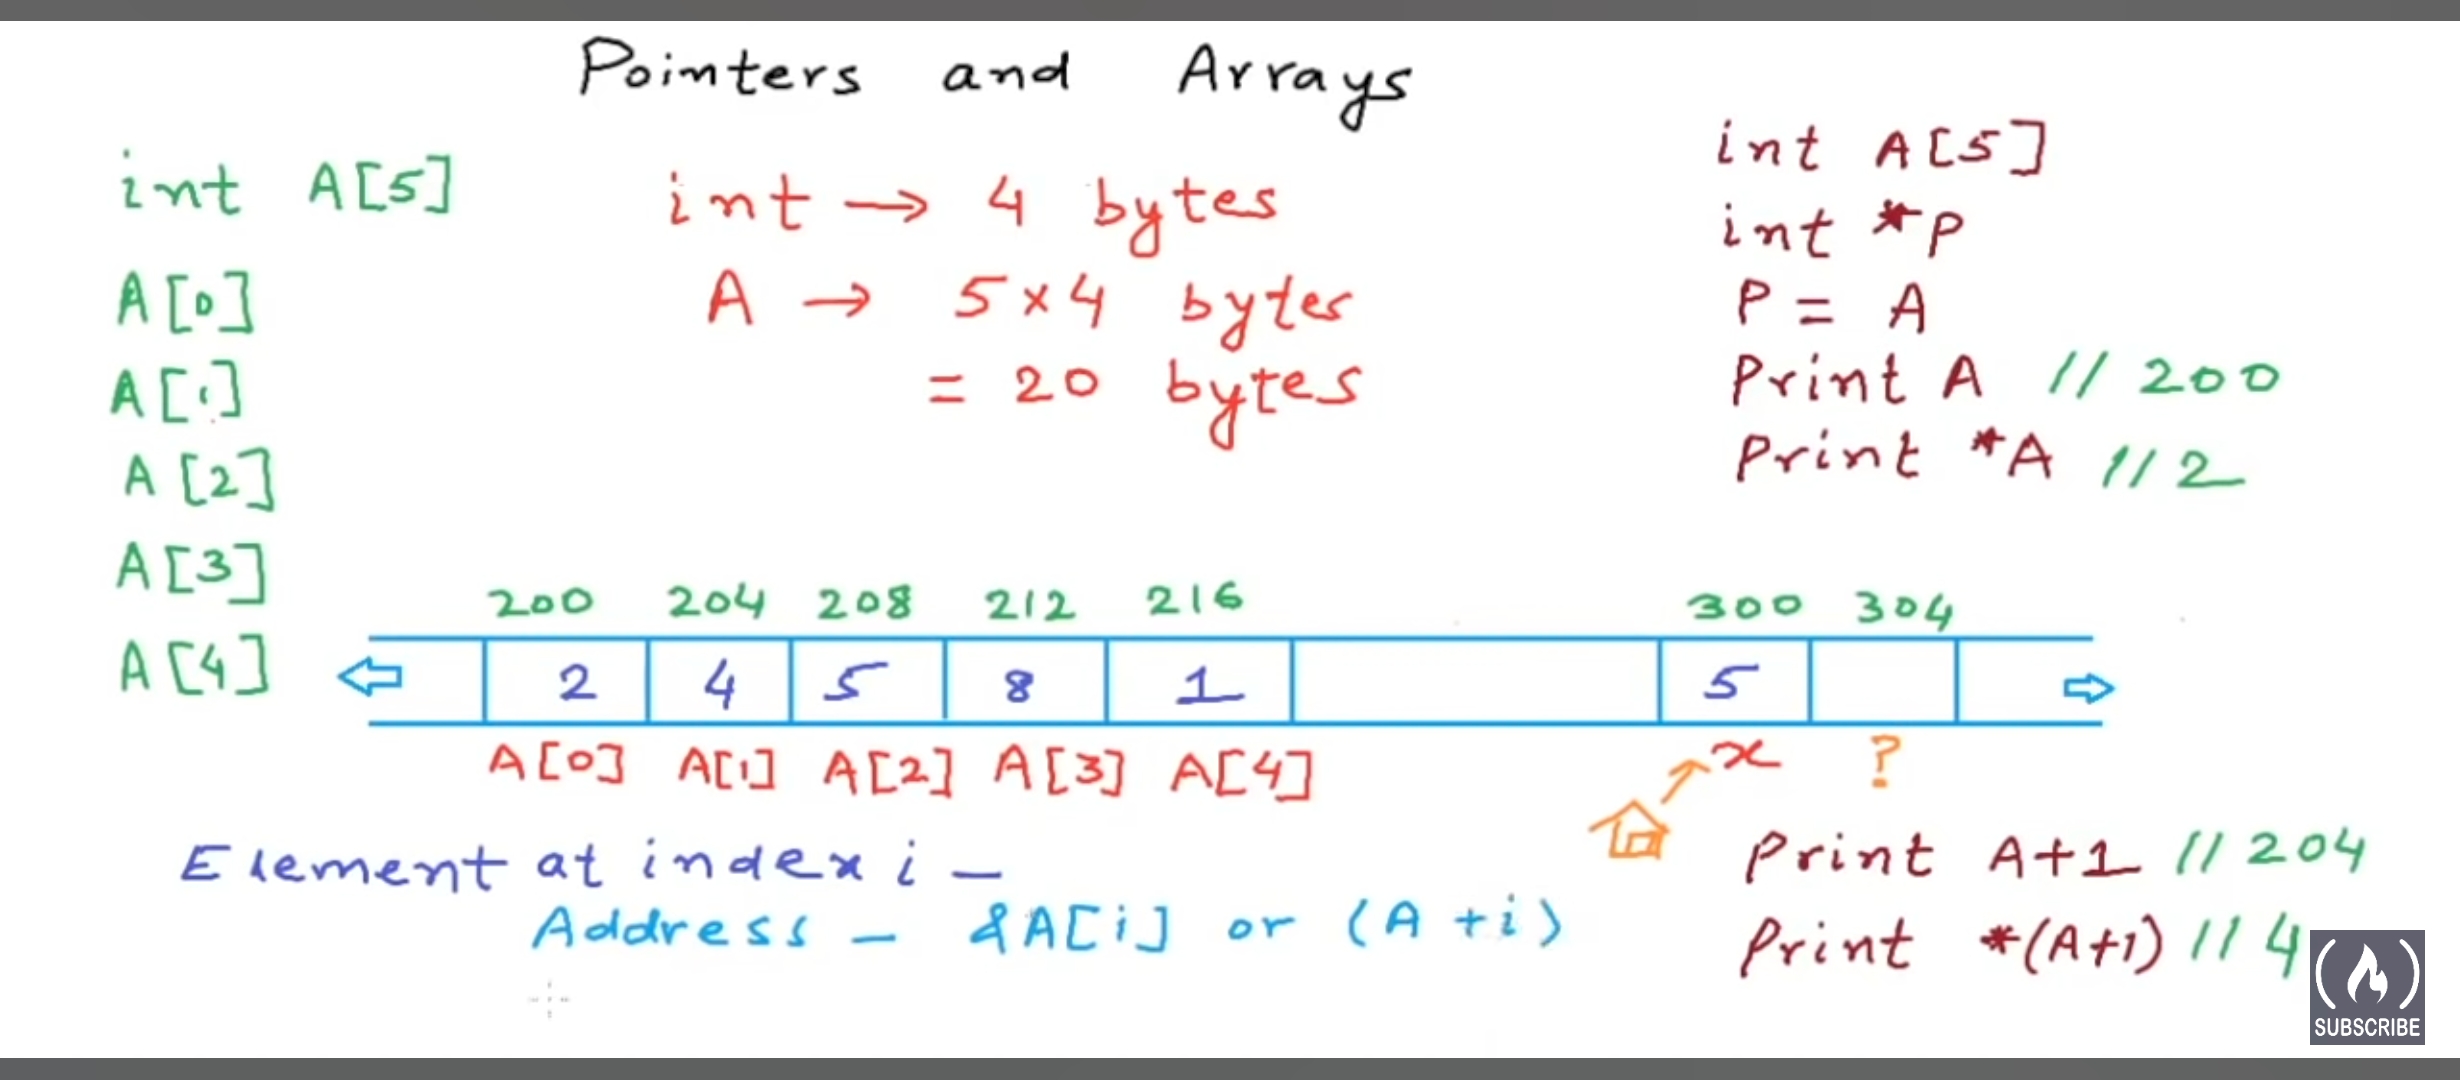 Pointers and Arrays
int A[5]
A[0]
A[1]
A[2]
A[3]
A[4]
int → 4 bytes
A → 5×4 bytes
= 20 bytes
int A[5]
int *p
P = A
Print A // 200
Print *A // 2
200 204 208 212 216 300 304
2 4 5 8 1 5
A[0] A[1] A[2] A[3] A[4] x ?
Element at index i –
Address – &A[i] or (A +i)
Print A+1 // 204
Print *(A+1) // 4
SUBSCRIBE